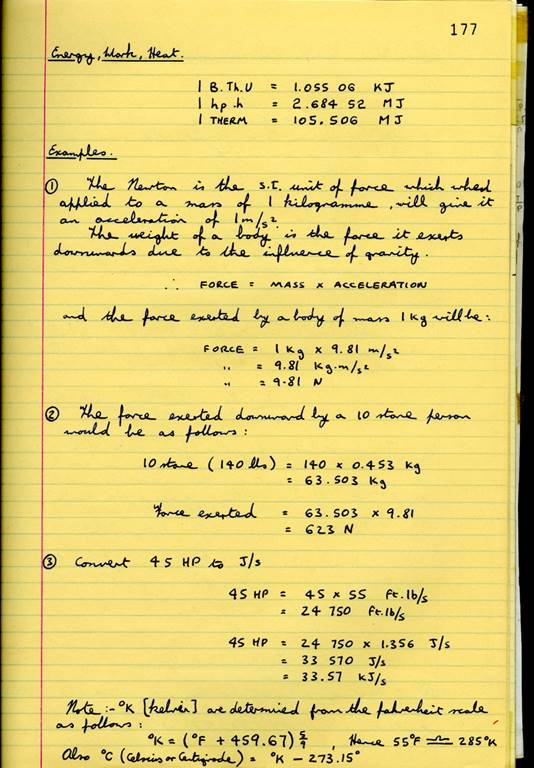 177
Energy, Work, Heat.
1 B.Th.U = 1.055 06 KJ
1 hp.h = 2.684 52 MJ
1 THERM = 105.506 MJ
Examples.
① The Newton is the S.I. unit of force which whed
applied to a mass of 1 kilogramme, will give it
an acceleration of 1m/s².
The weight of a body is the force it exerts
downwards due to the influence of gravity.
∴ FORCE = MASS x ACCELERATION
and the force exerted by a body of mass 1 Kg will be:
FORCE = 1 Kg x 9.81 m/s²
" = 9.81 Kg.m/s²
" = 9.81 N
② The force exerted downward by a 10 stone person
would be as follows:
10 stone (140 lbs) = 140 x 0.453 Kg
= 63.503 Kg
Force exerted = 63.503 x 9.81
= 623 N
③ Convert 45 HP to J/s
45 HP = 45 x 55 Ft.lb/s
= 24 750 Ft.lb/s
45 HP = 24 750 x 1.356 J/s
= 33 570 J/s
= 33.57 KJ/s
Note:- °K [kelvin] are determined from the fahrenheit scale
as follows:
°K = (°F + 459.67) 5/9, Hence 55°F ≏ 285°K
Also °C (Celsius or Centigrade) = °K - 273.15°